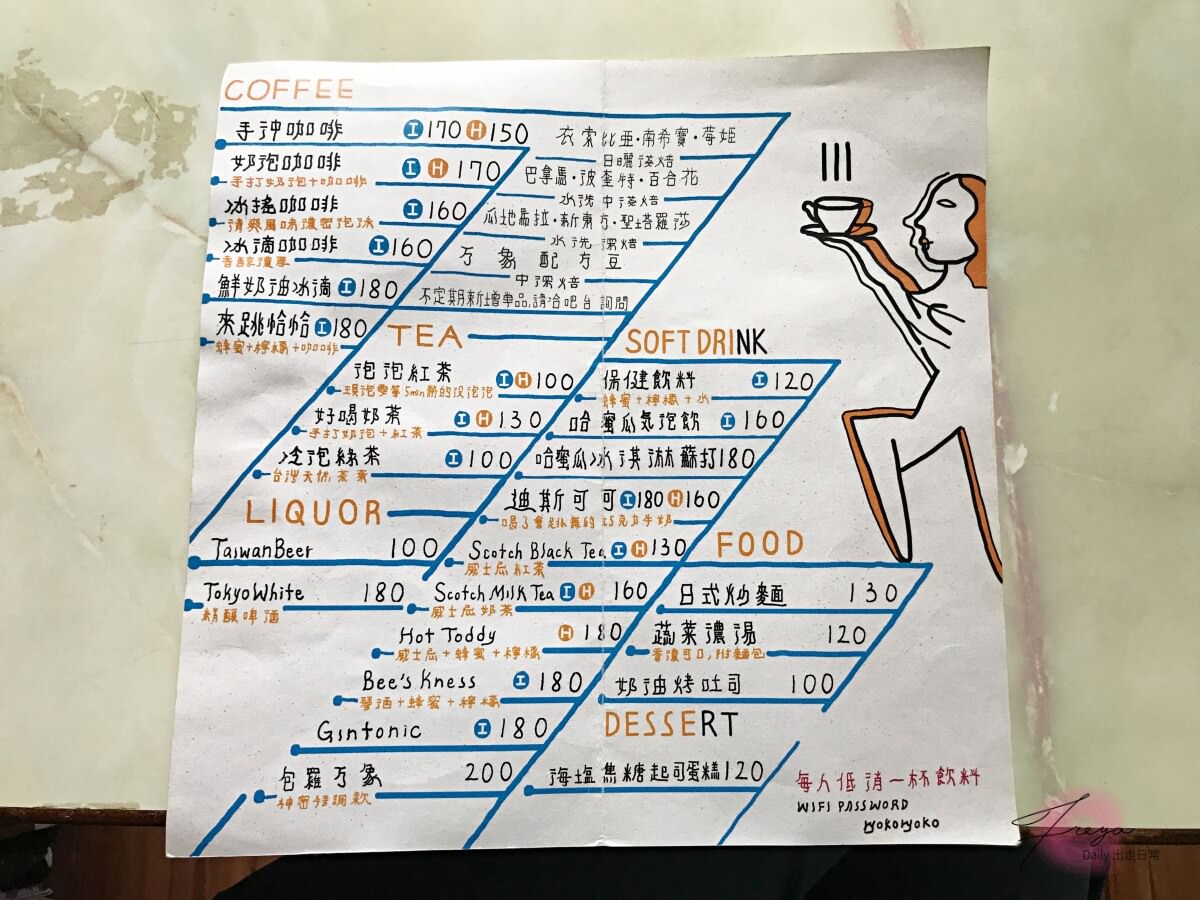 COFFEE
手沖咖啡 I 170 H 150
奶泡咖啡 I H 170
手打奶泡+咖啡
冰搖咖啡 I 160
清爽風味濃密泡沫
冰滴咖啡 I 160
香醇濃厚
鮮奶油冰滴 I 180
來跳恰恰 I 180
蜂蜜+檸檬+咖啡
衣索比亞·南希寶·莓姬
日曬淺焙
巴拿馬·波奎特·百合花
水洗中淺焙
瓜地馬拉·新東方·聖塔羅莎
水洗深焙
万象配方豆
中深焙
不定期新增單品,請洽吧台詢問
TEA
泡泡紅茶 I H 100
現泡要等5min粉的沒泡泡
好喝奶茶 I H 130
手打奶泡+紅茶
冷泡綠茶 I 100
台灣天然茶葉
SOFT DRINK
保健飲料 I 120
蜂蜜+檸檬+水
哈蜜瓜氣泡飲 I 160
哈蜜瓜冰淇淋蘇打 180
迪斯可可 I 180 H 160
喝了會跳舞的巧克力牛奶
LIQUOR
TaiwanBeer 100
TokyoWhite 180
精釀啤酒
Scotch Black Tea I H 130
威士忌紅茶
Scotch Milk Tea I H 160
威士忌奶茶
Hot Toddy H 180
威士忌+蜂蜜+檸檬
Bee's Kness I 180
琴酒+蜂蜜+檸檬
Gintonic I 180
包羅万象 200
神密特調款
FOOD
日式炒麵 130
蔬菜濃湯 120
香濃可口,附麵包
奶油烤吐司 100
DESSERT
海塩焦糖起司蛋糕 120
每人低消一杯飲料
WIFI PASSWORD
yokoyoko
Freya
Daily 出走日常